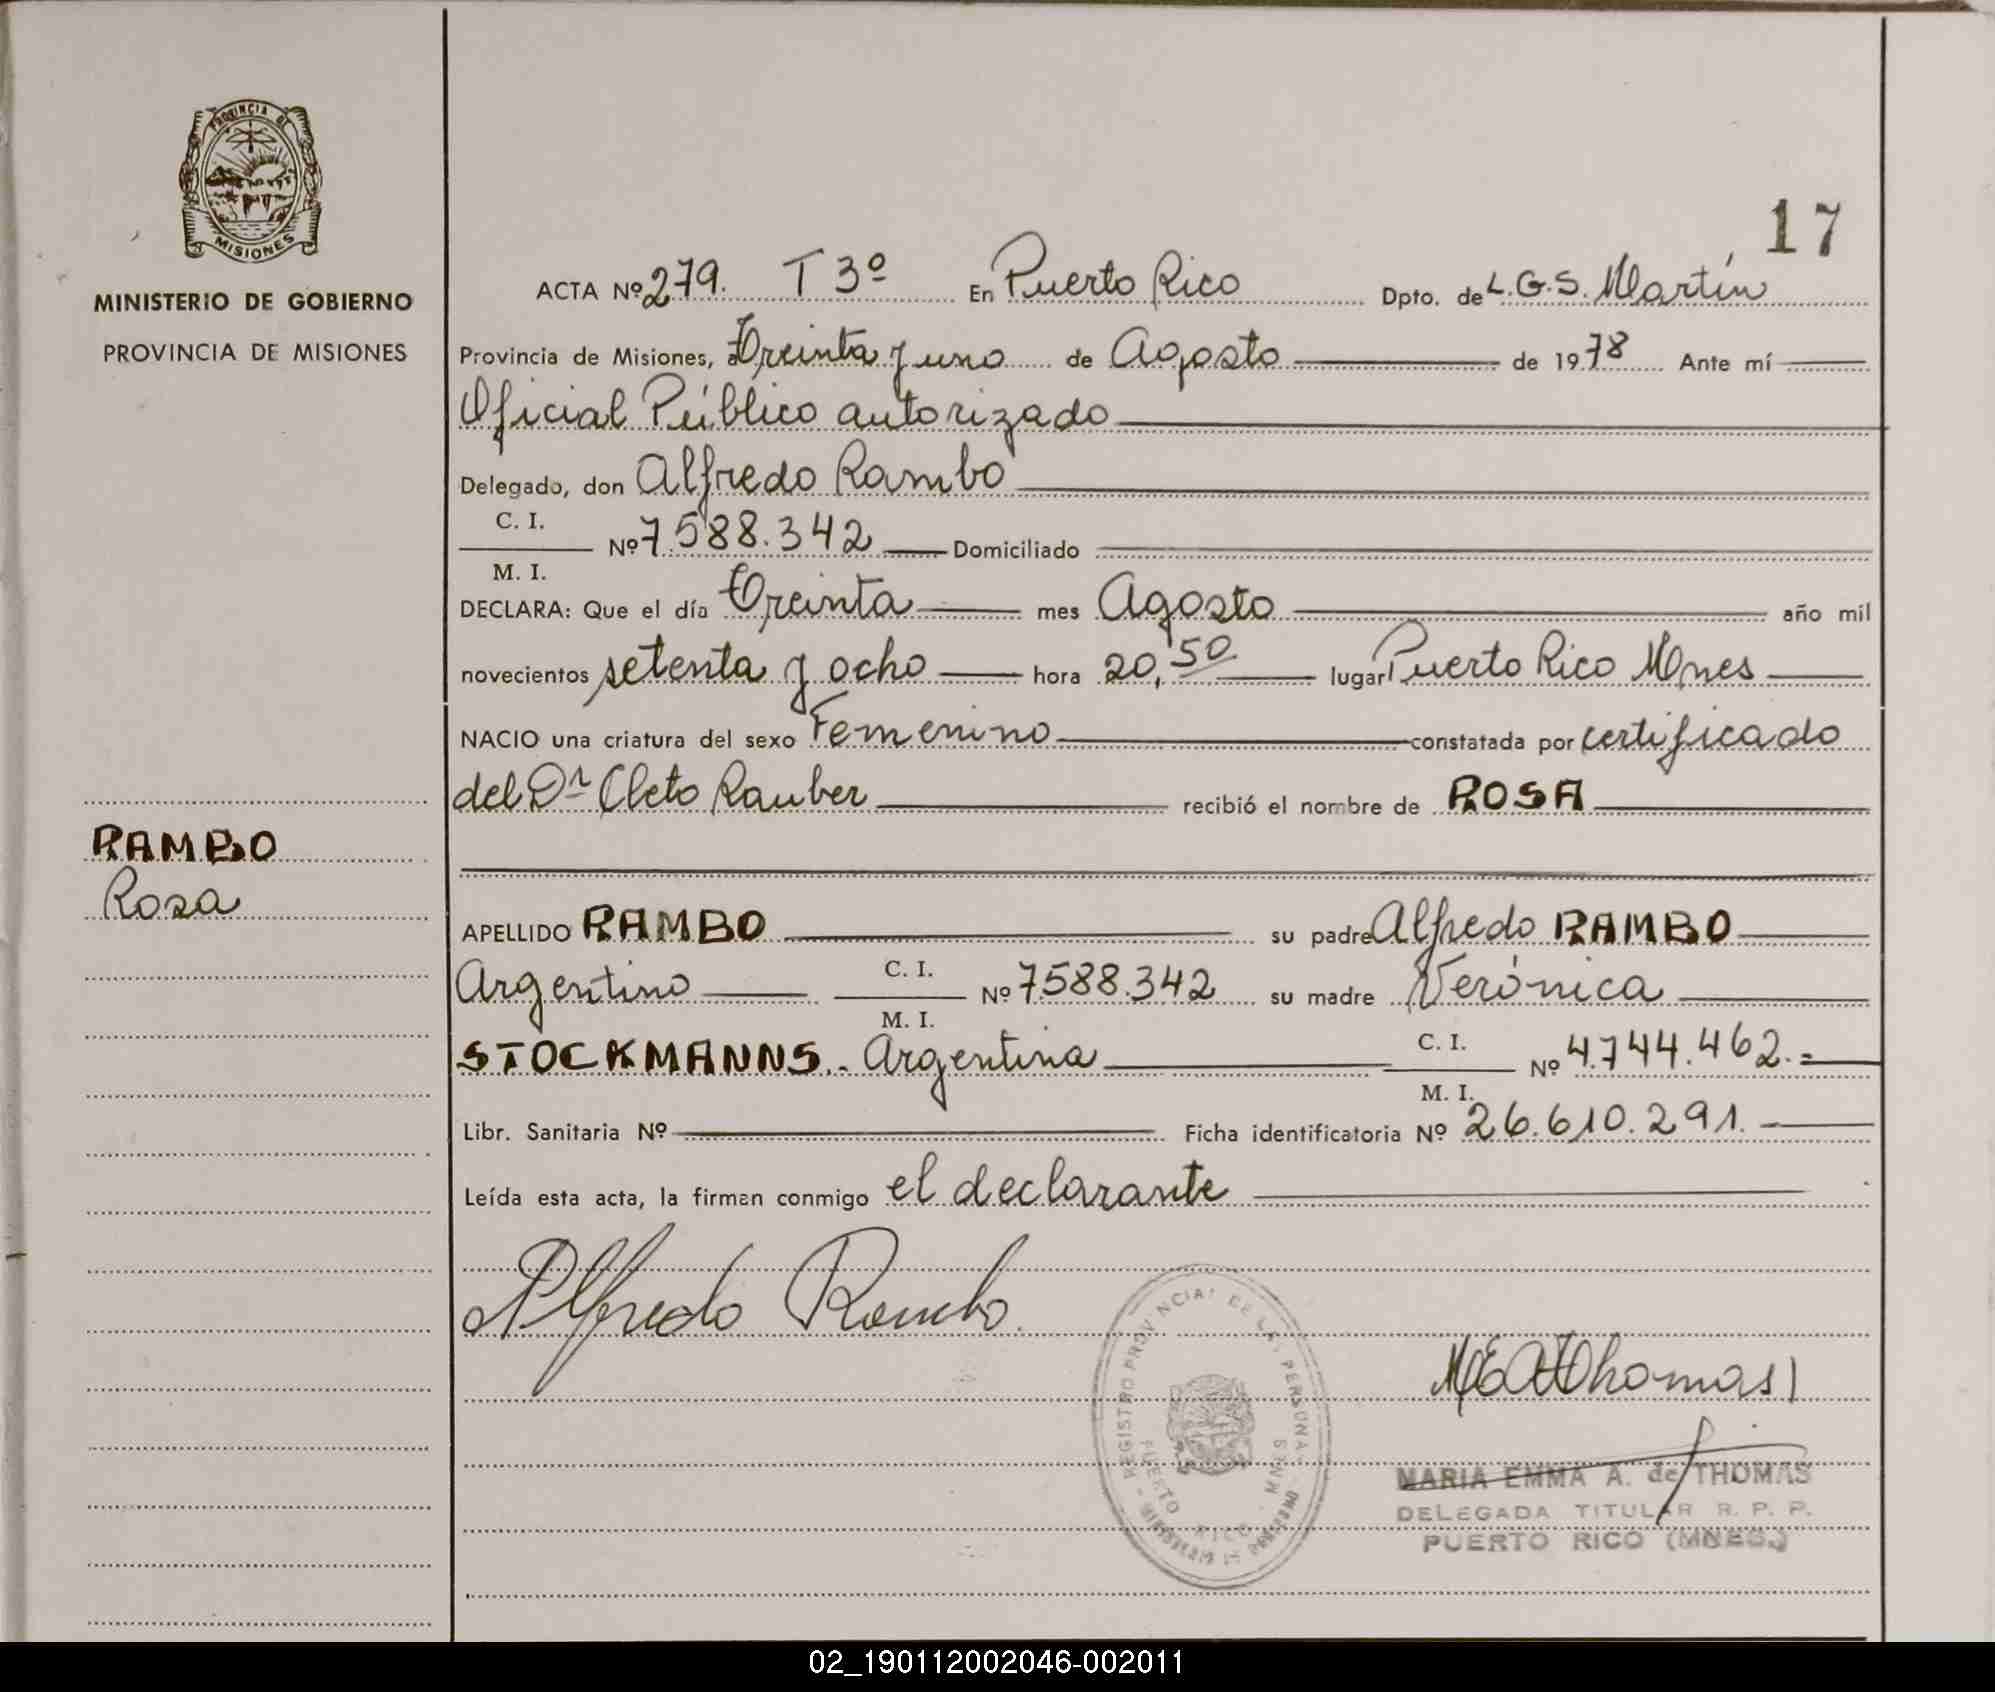 PROVINCIA DE
MISIONES
MINISTERIO DE GOBIERNO
PROVINCIA DE MISIONES
RAMBO
Rosa
17
ACTA Nº 279. T 3º En Puerto Rico Dpto. de L.G.S. Martín
Provincia de Misiones, a Treinta y uno de Agosto de 1978 Ante mí
Oficial Público autorizado
Delegado, don Alfredo Rambo
C. I.
Nº 7.588.342 Domiciliado
M. I.
DECLARA: Que el día Treinta mes Agosto año mil
novecientos setenta y ocho hora 20,50 lugar Puerto Rico Mnes
NACIO una criatura del sexo Femenino constatada por certificado
del Dr Cleto Rauber recibió el nombre de ROSA
APELLIDO RAMBO su padre Alfredo RAMBO
Argentino C. I. Nº 7.588.342 su madre Verónica
M. I.
STOCKMANNS.- Argentina C. I. Nº 4.744.462.=
M. I.
Libr. Sanitaria Nº Ficha identificatoria Nº 26.610.291.
Leída esta acta, la firman conmigo el declarante
Alfredo Rambo
REGISTRO PROVINCIAL DE LAS PERSONAS
PUERTO RICO - MNES
MEAThomas
MARIA EMMA A. de THOMAS
DELEGADA TITULAR R. P. P.
PUERTO RICO (MNES.)
02_190112002046-002011